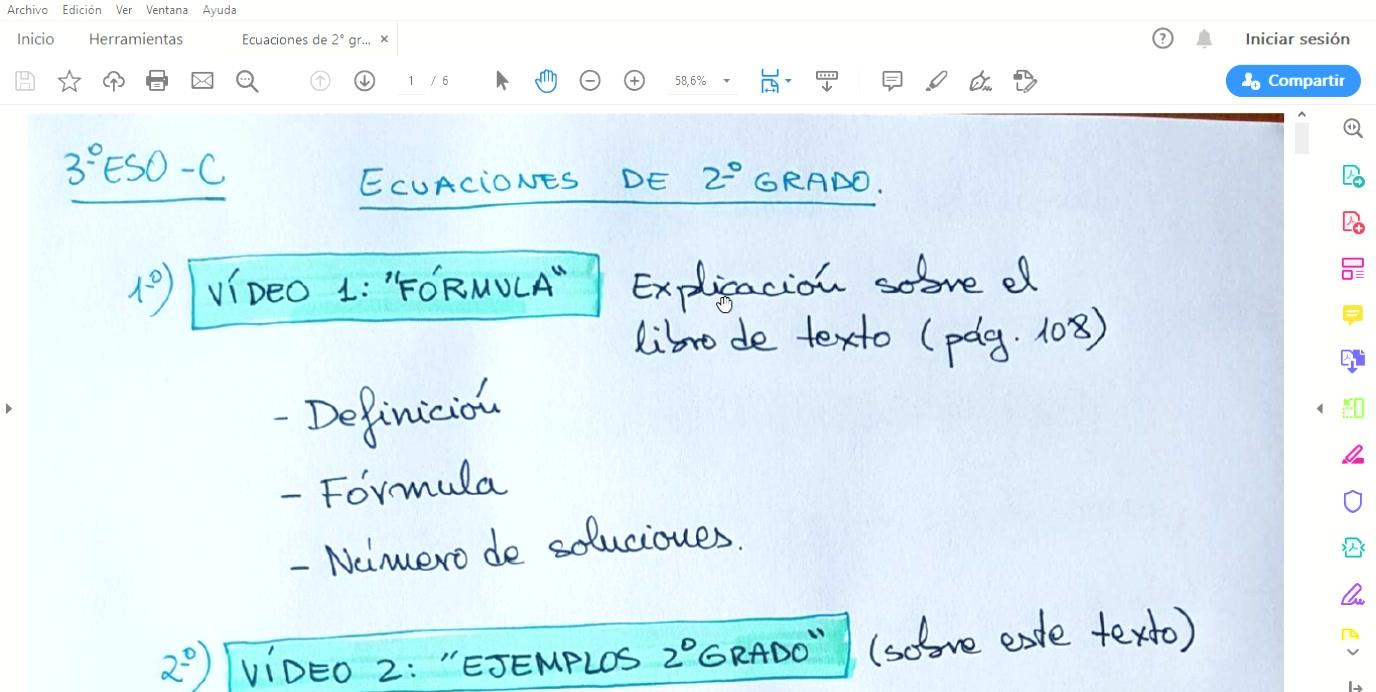 Archivo Edición Ver Ventana Ayuda
Inicio Herramientas Ecuaciones de 2° gr... × Iniciar sesión
1 / 6 58,6% Compartir
3º ESO - C
ECUACIONES DE 2º GRADO.
1º) VÍDEO 1: "FÓRMULA" Explicación sobre el
libro de texto (pág. 108)
- Definición
- Fórmula
- Número de soluciones.
2º) VÍDEO 2: "EJEMPLOS 2º GRADO" (sobre este texto)